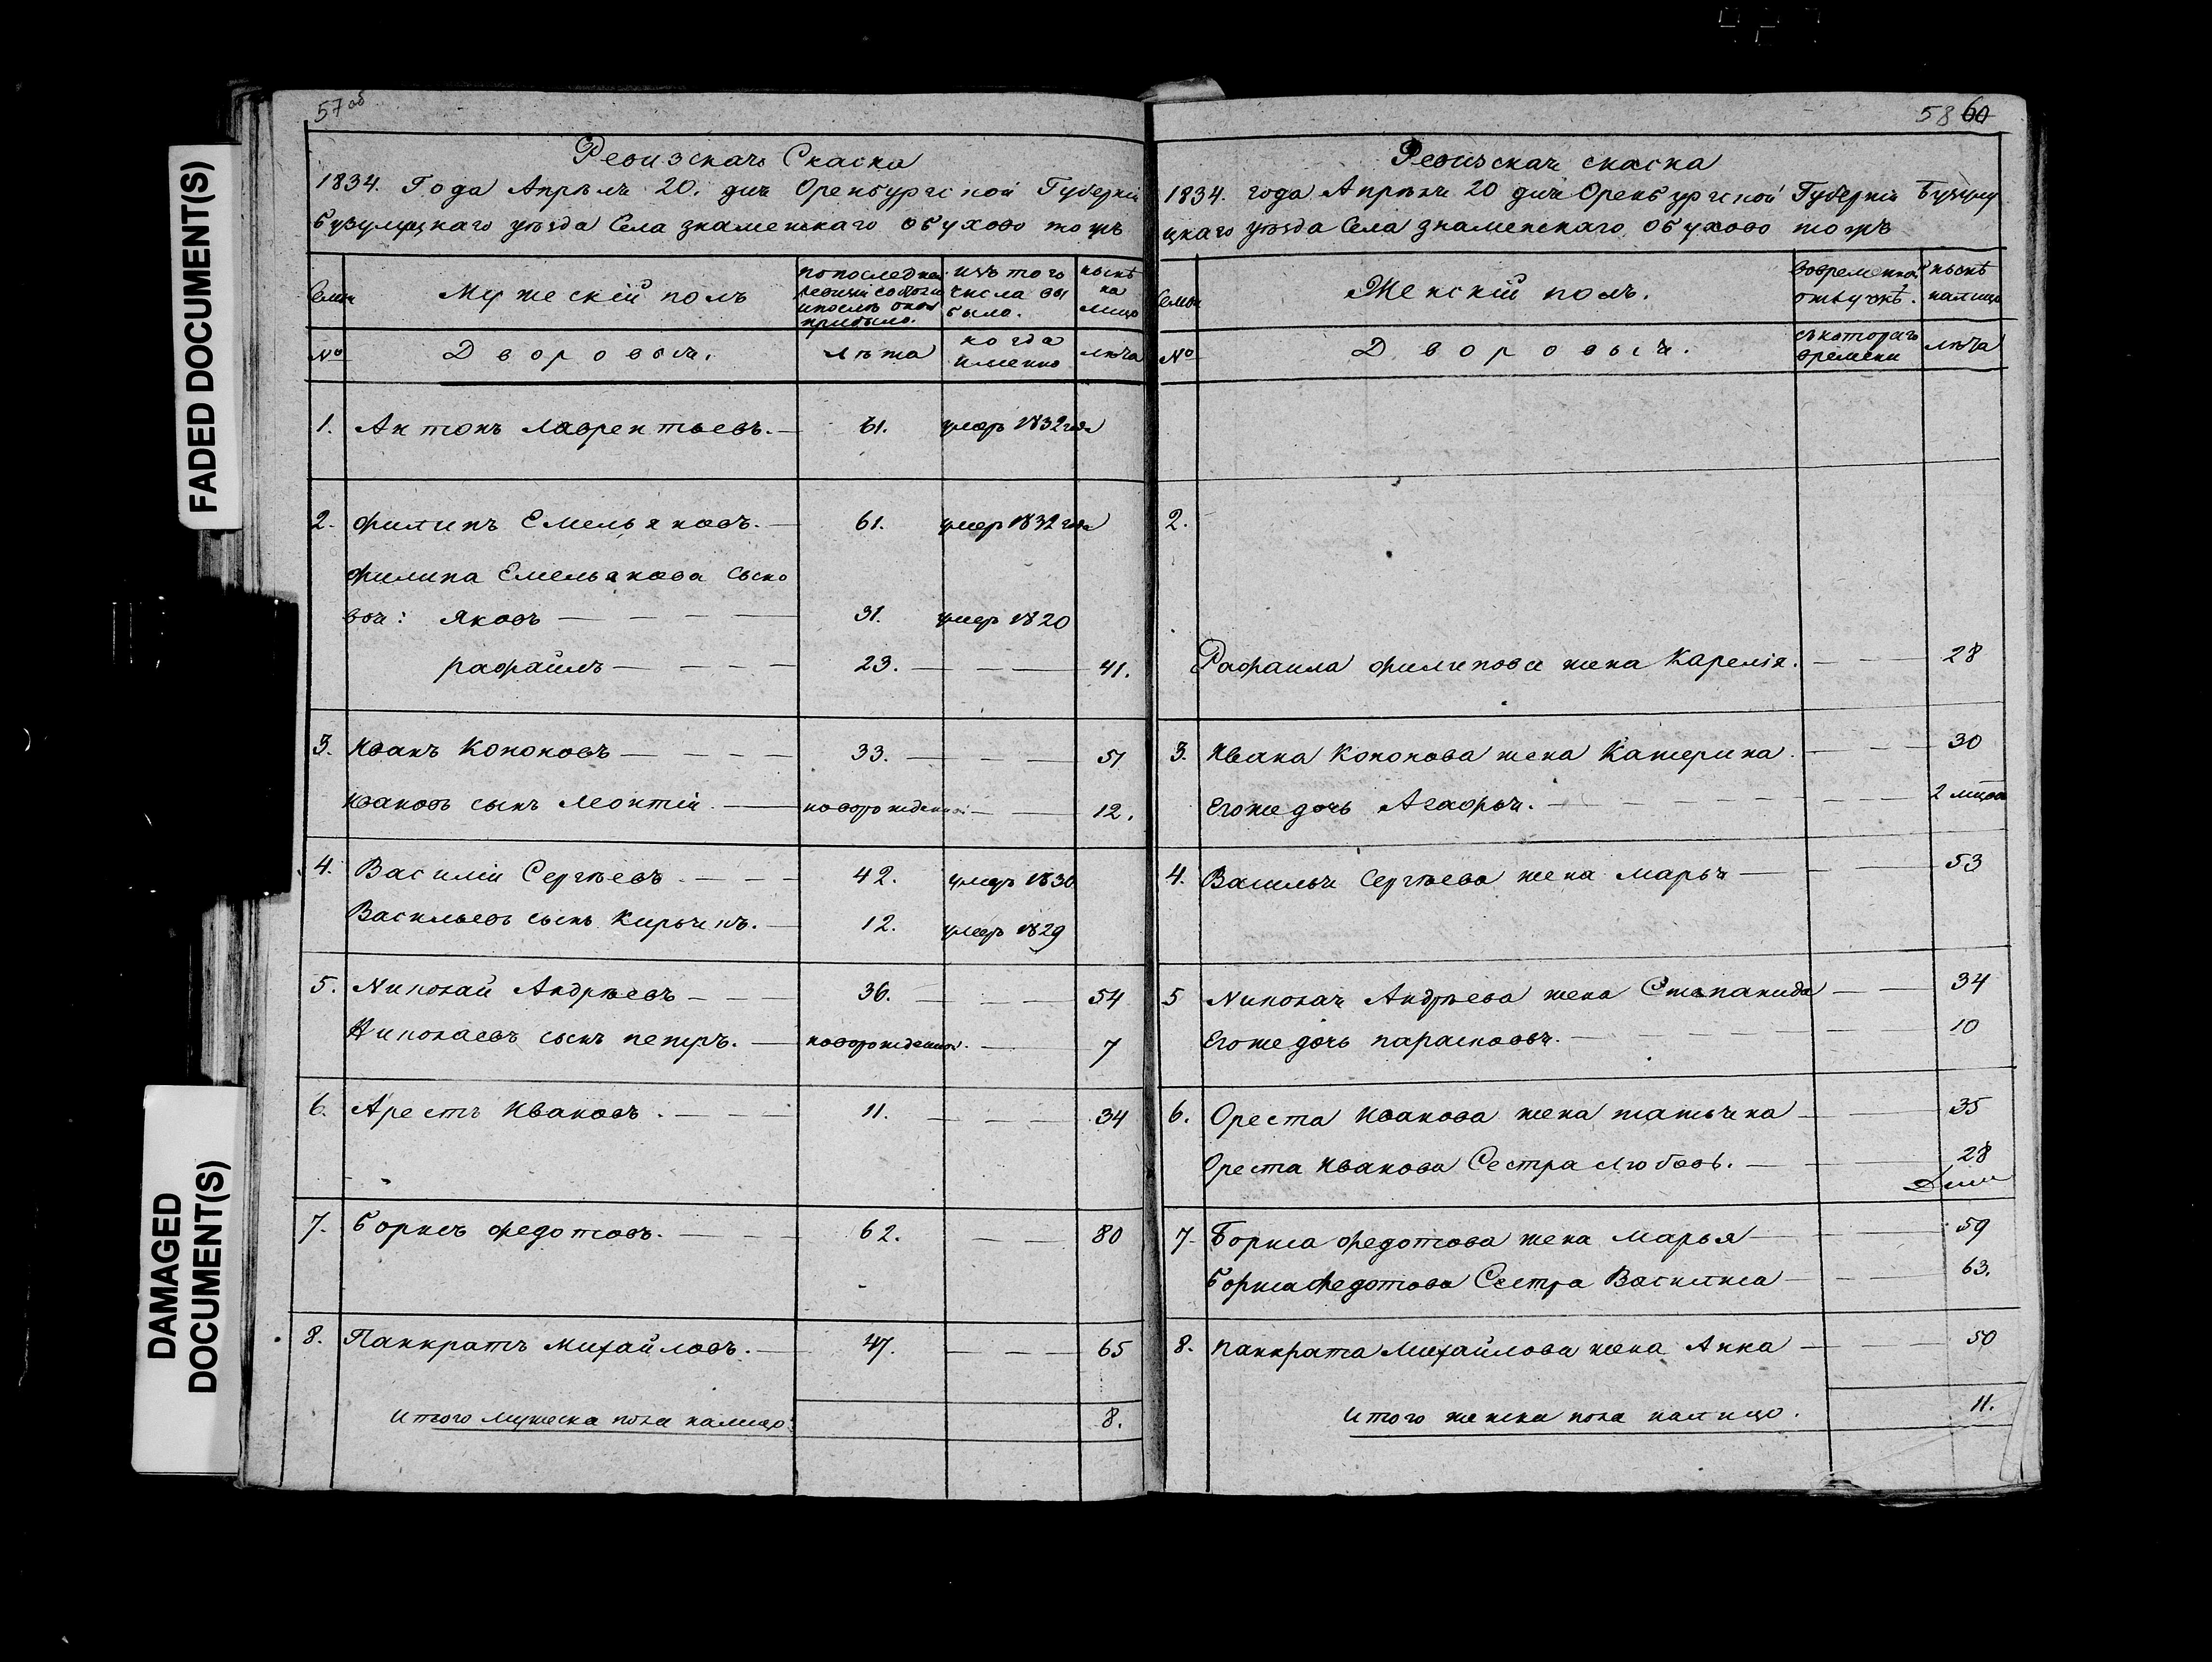 FADED DOCUMENT(S)
DAMAGED
DOCUMENT(S)
57 об
Ревизская Скаска
1834. Года Апрѣля 20. дня Оренбургской Губерніи
бузулуцкаго уѣзда Села знаменскаго обухово тожъ
Семьи Мужескій полъ по последней ревизіи состояло и послѣ оной прибыло. изъ того числа выбыло. нынѣ на лицо
№ Дворовыя. лѣта когда именно лѣта
1. Антонъ лаврентьевъ. — 61. умеръ 1832 года
2. филипъ Емельяновъ. — 61. умеръ 1832 года
филипа Емельянова сыно
вья: яковъ — — — — 31. умеръ 1820
рафайлъ — — — — 23. — — — 41.
3. Иванъ Кононовъ — — — — 33. — — — 51
Ивановъ сынъ Леонтій. — новорожденной — — 12.
4. Василіи Сергѣевъ. — — — 42. умеръ 1830
Васильевъ сынъ Кирьянъ. — 12. умеръ 1829
5. Николай Андрѣевъ — — — 36. — — — 54
Николаевъ сынъ петръ. — новорожденной. — 7
6. Арестъ Ивановъ. — — — 11. — — — 34
7. борисъ федотовъ. — — — 62. — — 80
8. Панкратъ Михайловъ. — 47. — — — 65
итого мужеска пола налицо: 8.
58 60
Ревизская скаска
1834. года Апрѣля 20 дня Оренбургской Губерніи Бузулу
цкаго уѣзда Села знаменскаго обухово тожъ
Семьи Женскій полъ. во временной отлучкѣ. нынѣ налицо
№ Дворовыя. съ котораго времени лѣта
2.
Рафаила филипова жена Карелія. — — 28
3. Ивана Кононова жена Катерина. — — — 30
Егоже дочь Агафья. — — — — — — 2 мѣсяца
4. Василья Сергѣева жена марья — — — 53
5 Николая Андрѣева жена Степанида — — 34
Егоже дочь парасковья. — — — — — 10
6. Ореста Иванова жена татьяна — — 35
Ореста Иванова Сестра любовь. — — 28
7. Бориса федотова жена Марья — — — 59
бориса федотова Сестра Василиса — — — 63.
8. панкрата Михайлова жена Анна — — — 50
итого женска пола налицо. 11.